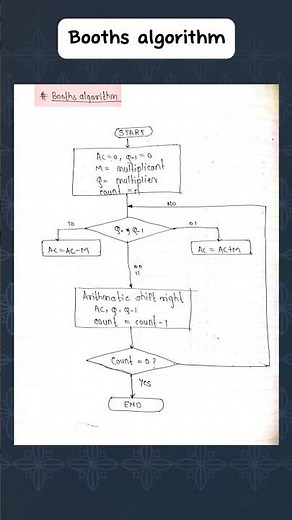 Booths algorithm
# Booths algorithm
START
AC=0, q-1=0
M = multiplicant
q= multiplier
count = n
NO
10
q0, q-1
01
AC=AC-M
AC=AC+M
00
11
Arithmatic shift right
AC, q, q-1
count = count-1
Count = 0?
Yes
END